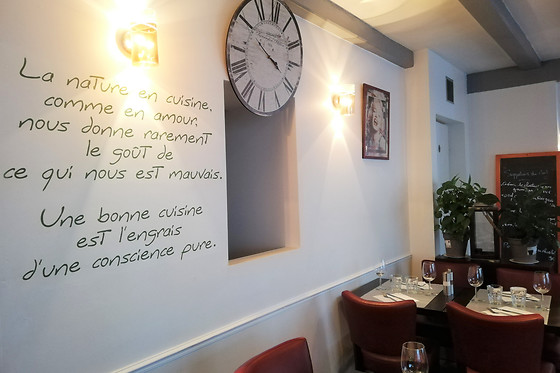 La nature en cuisine,
comme en amour,
nous donne rarement
le goût de
ce qui nous est mauvais.
Une bonne cuisine
est l'engrais
d'une conscience pure.